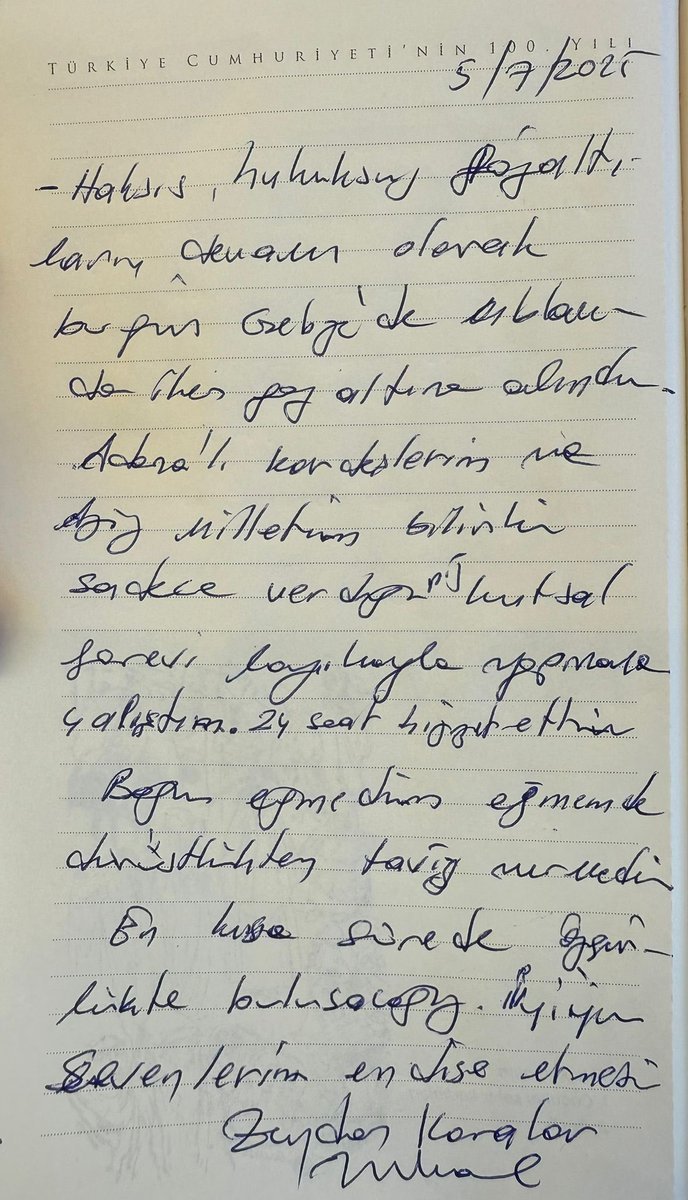 TÜRKİYE CUMHURİYETİ'NİN 100. YILI
5/7/2025
- Haksız, hukuksuz gözaltı-
ların devamı olarak
bugün Gebze'de ablam-
da iken göz altına alındım.
Adana'lı kardeşlerim ve
aziz milletim bilsinki
sadece verdiğiniz kutsal
görevi layıkıyla yapmaya
çalıştım. 24 saat hizmet ettim
Boğun eğmedim eğmemde
dürüstlükten taviz vermedim
En kısa sürede özgür-
lükte bulusacagız. İyiyim
Sevenlerim endise etmesin
Zeydan Karalar